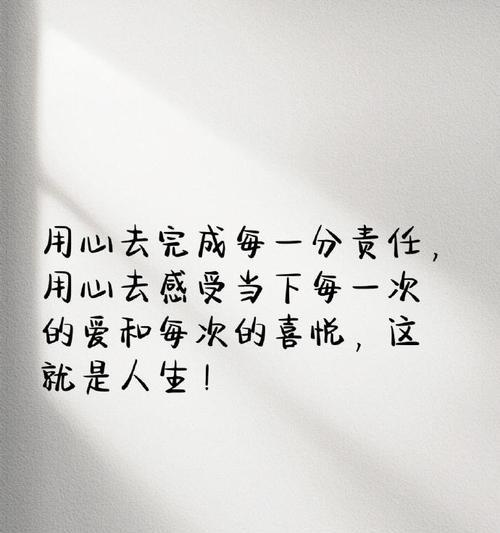 用心去完成每一分责任，
用心去感受当下每一次
的爱和每次的喜悦，这
就是人生！